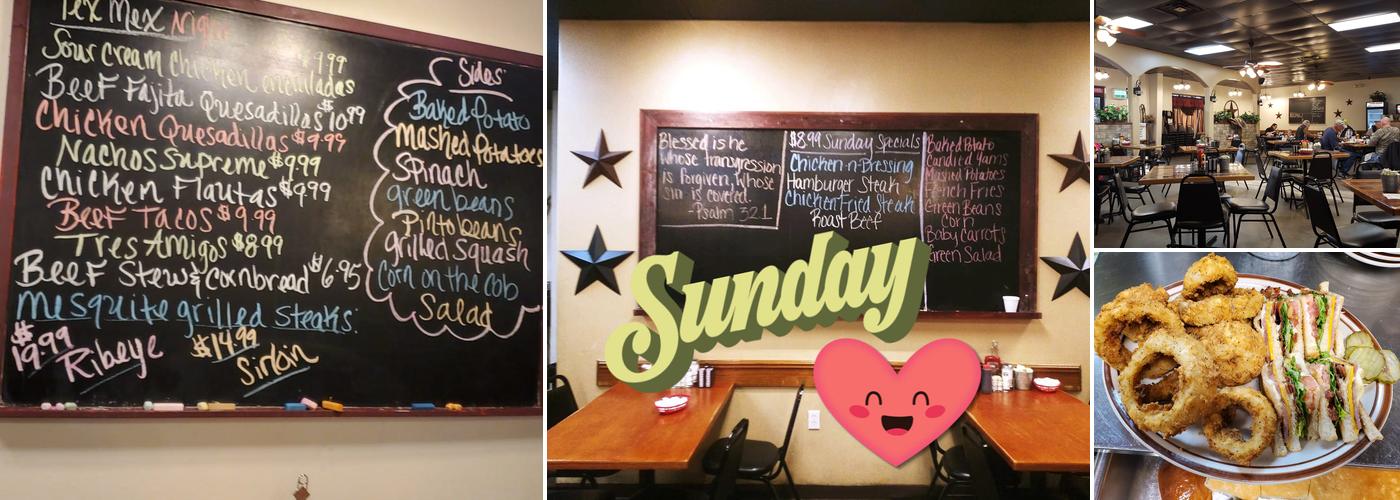 Tex Mex Night
Sour cream chicken enchiladas $9.99
Beef Fajita Quesadillas $10.99
Chicken Quesadillas $9.99
Nachos Supreme $9.99
Chicken Flautas $9.99
Beef Tacos $9.99
Tres Amigos $8.99
Beef Stew & Cornbread $6.95
mesquite grilled steaks:
$19.99 Ribeye
$14.99 Sirloin
Sides
Baked Potato
Mashed Potatoes
Spinach
green beans
Pinto beans
grilled Squash
Corn on the cob
Salad
Blessed is he
whose transgression
is forgiven, whose
sin is covered.
-Psalm 32:1
$8.99 Sunday Specials
Chicken-n-Dressing
Hamburger Steak
Chicken Fried Steak
Roast Beef
Baked Potato
Candied Yams
Mashed Potatoes
French Fries
Green Beans
Corn
Baby Carrots
Green Salad
Sunday